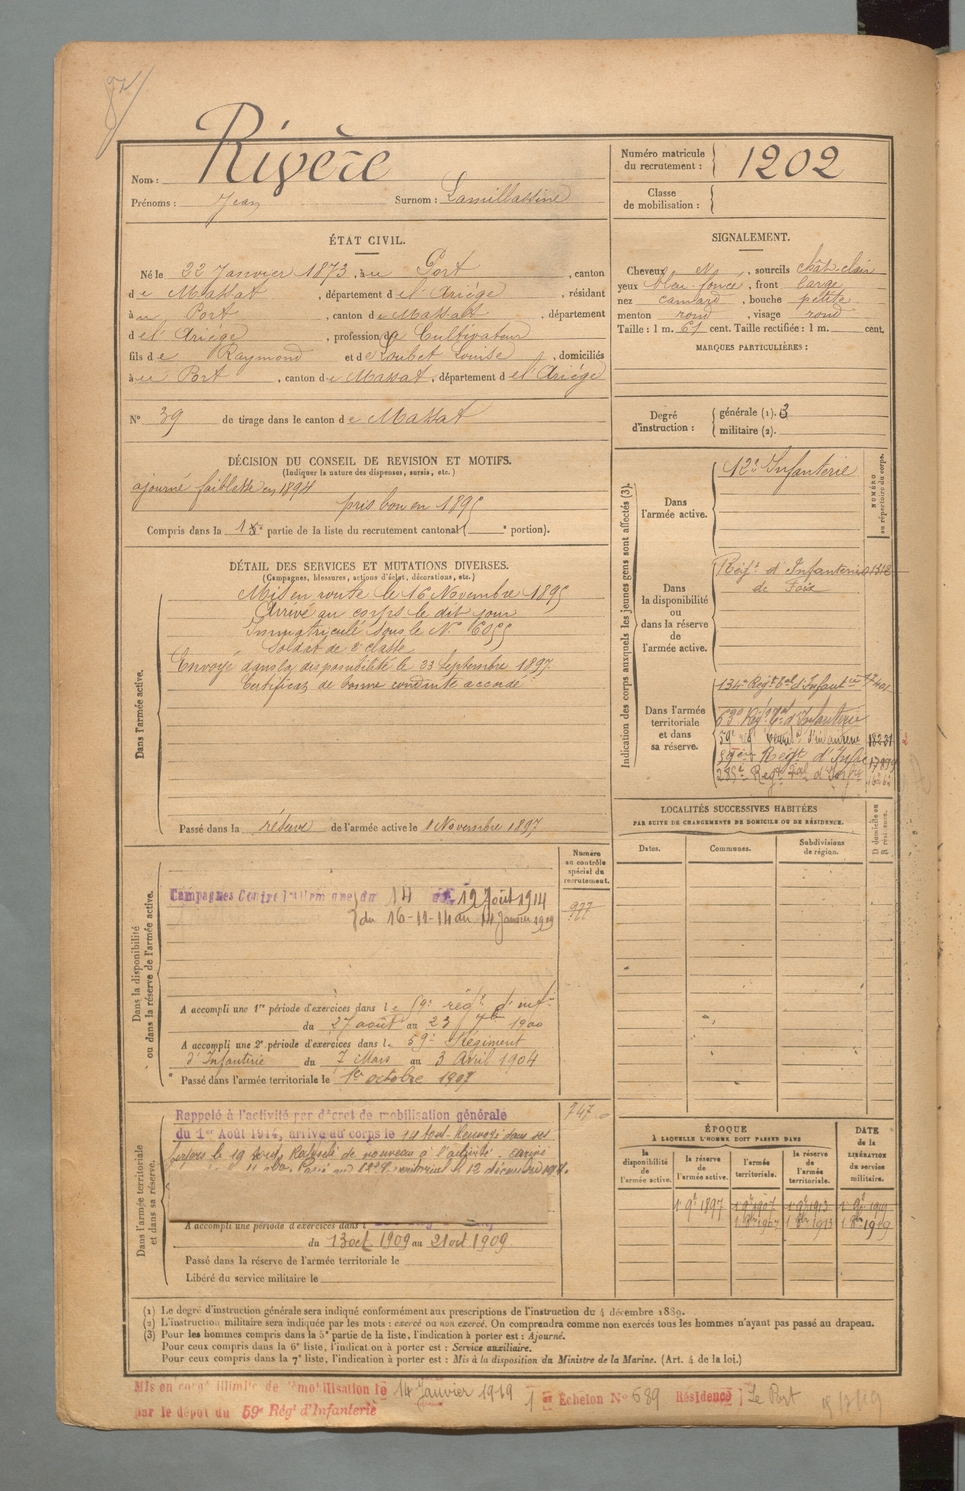 Nom : Rivère
Prénoms : Jean Surnom : Lamillassine
Numéro matricule du recrutement : 1202
Classe de mobilisation :
ÉTAT CIVIL.
Né le 22 Janvier 1873, à u Port, canton
de Massat, département de l'Ariège, résidant
à u Port, canton de Massat, département
de l'Ariège, profession de Cultivateur
fils de Raymond et de Loubet Louise, domiciliés
à u Port, canton de Massat, département de l'Ariège
N° 39 de tirage dans le canton de Massat
SIGNALEMENT.
Cheveux N, sourcils chât. clair
yeux bleu foncé, front large
nez camard, bouche petite
menton rond, visage rond
Taille : 1 m. 61 cent. Taille rectifiée : 1 m. cent.
MARQUES PARTICULIÈRES :
Degré d'instruction : générale (1). 3
militaire (2).
DÉCISION DU CONSEIL DE REVISION ET MOTIFS.
(Indiquer la nature des dispenses, sursis, etc.)
ajourné faiblesse en 1894
pris bon en 1895
Compris dans la 1re partie de la liste du recrutement cantonal ( e portion).
DÉTAIL DES SERVICES ET MUTATIONS DIVERSES.
(Campagnes, blessures, actions d'éclat, décorations, etc.)
Dans l'armée active.
Mis en route le 16 Novembre 1895
Arrivé au corps le dit jour
Immatriculé sous le N° 6055
Soldat de 2e classe
Envoyé dans la disponibilité le 23 Septembre 1897
Certificat de bonne conduite accordé
Passé dans la réserve de l'armée active le 1 Novembre 1897
Indication des corps auxquels les jeunes gens sont affectés (3).
NUMÉRO au répertoire du corps.
Dans l'armée active.
12e Infanterie
Dans la disponibilité ou dans la réserve de l'armée active.
Régt d'Infanterie 1312
de Foix
Dans l'armée territoriale et dans sa réserve.
134e Régt Tal d'Infanterie
63e Régt Tal d'Infanterie
59e Régt d'infanterie 18231
59ème Régt d'Infie
Régt Tal d'Infie
LOCALITÉS SUCCESSIVES HABITÉES
PAR SUITE DE CHANGEMENTS DE DOMICILE OU DE RÉSIDENCE.
Dates. Communes. Subdivisions de région. D domicile ou R résidence.
Dans la disponibilité ou dans la réserve de l'armée active.
Numéro au contrôle spécial du recrutement.
977
Campagnes Contre l'allemagne du 14 au 19 Août 1914
du 16-11-14 au 14 Janvier 1919
A accompli une 1re période d'exercices dans le 59e régt d'infie
du 27 août au 23 7bre 1900
A accompli une 2e période d'exercices dans le 59e Régiment
d'Infanterie du 7 Mars au 3 Avril 1904
Passé dans l'armée territoriale le 1er octobre 1907
Dans l'armée territoriale et dans sa réserve.
747
Rappelé à l'activité par décret de mobilisation générale
du 1er Août 1914, arrivé au corps le 14 août. Renvoyé dans ses
foyers le 19 août. Rappelé de nouveau à l'activité. arrivé
A accompli une période d'exercices dans l
du 13 oct. 1909 au 21 oct 1909
Passé dans la réserve de l'armée territoriale le
Libéré du service militaire le
ÉPOQUE
À LAQUELLE L'HOMME DOIT PASSER DANS
la disponibilité de l'armée active. la réserve de l'armée active. l'armée territoriale. la réserve de l'armée territoriale.
DATE de la LIBÉRATION du service militaire.
1 9e 1897 1 9e 1907 1 9e 1913 1 9e 1919
1 8bre 1907 1 8bre 1913 1 8bre 1919
(1) Le degré d'instruction générale sera indiqué conformément aux prescriptions de l'instruction du 4 décembre 1889.
(2) L'instruction militaire sera indiquée par les mots : exercé ou non exercé. On comprendra comme non exercés tous les hommes n'ayant pas passé au drapeau.
(3) Pour les hommes compris dans la 5e partie de la liste, l'indication à porter est : Ajourné.
Pour ceux compris dans la 6e liste, l'indication à porter est : Service auxiliaire.
Pour ceux compris dans la 7e liste, l'indication à porter est : Mis à la disposition du Ministre de la Marine. (Art. 4 de la loi.)
Mis en congé illimité de démobilisation le 14 Janvier 1919 1er Echelon N° 689 Résidence Le Port
par le dépôt du 59e Régt d'Infanterie